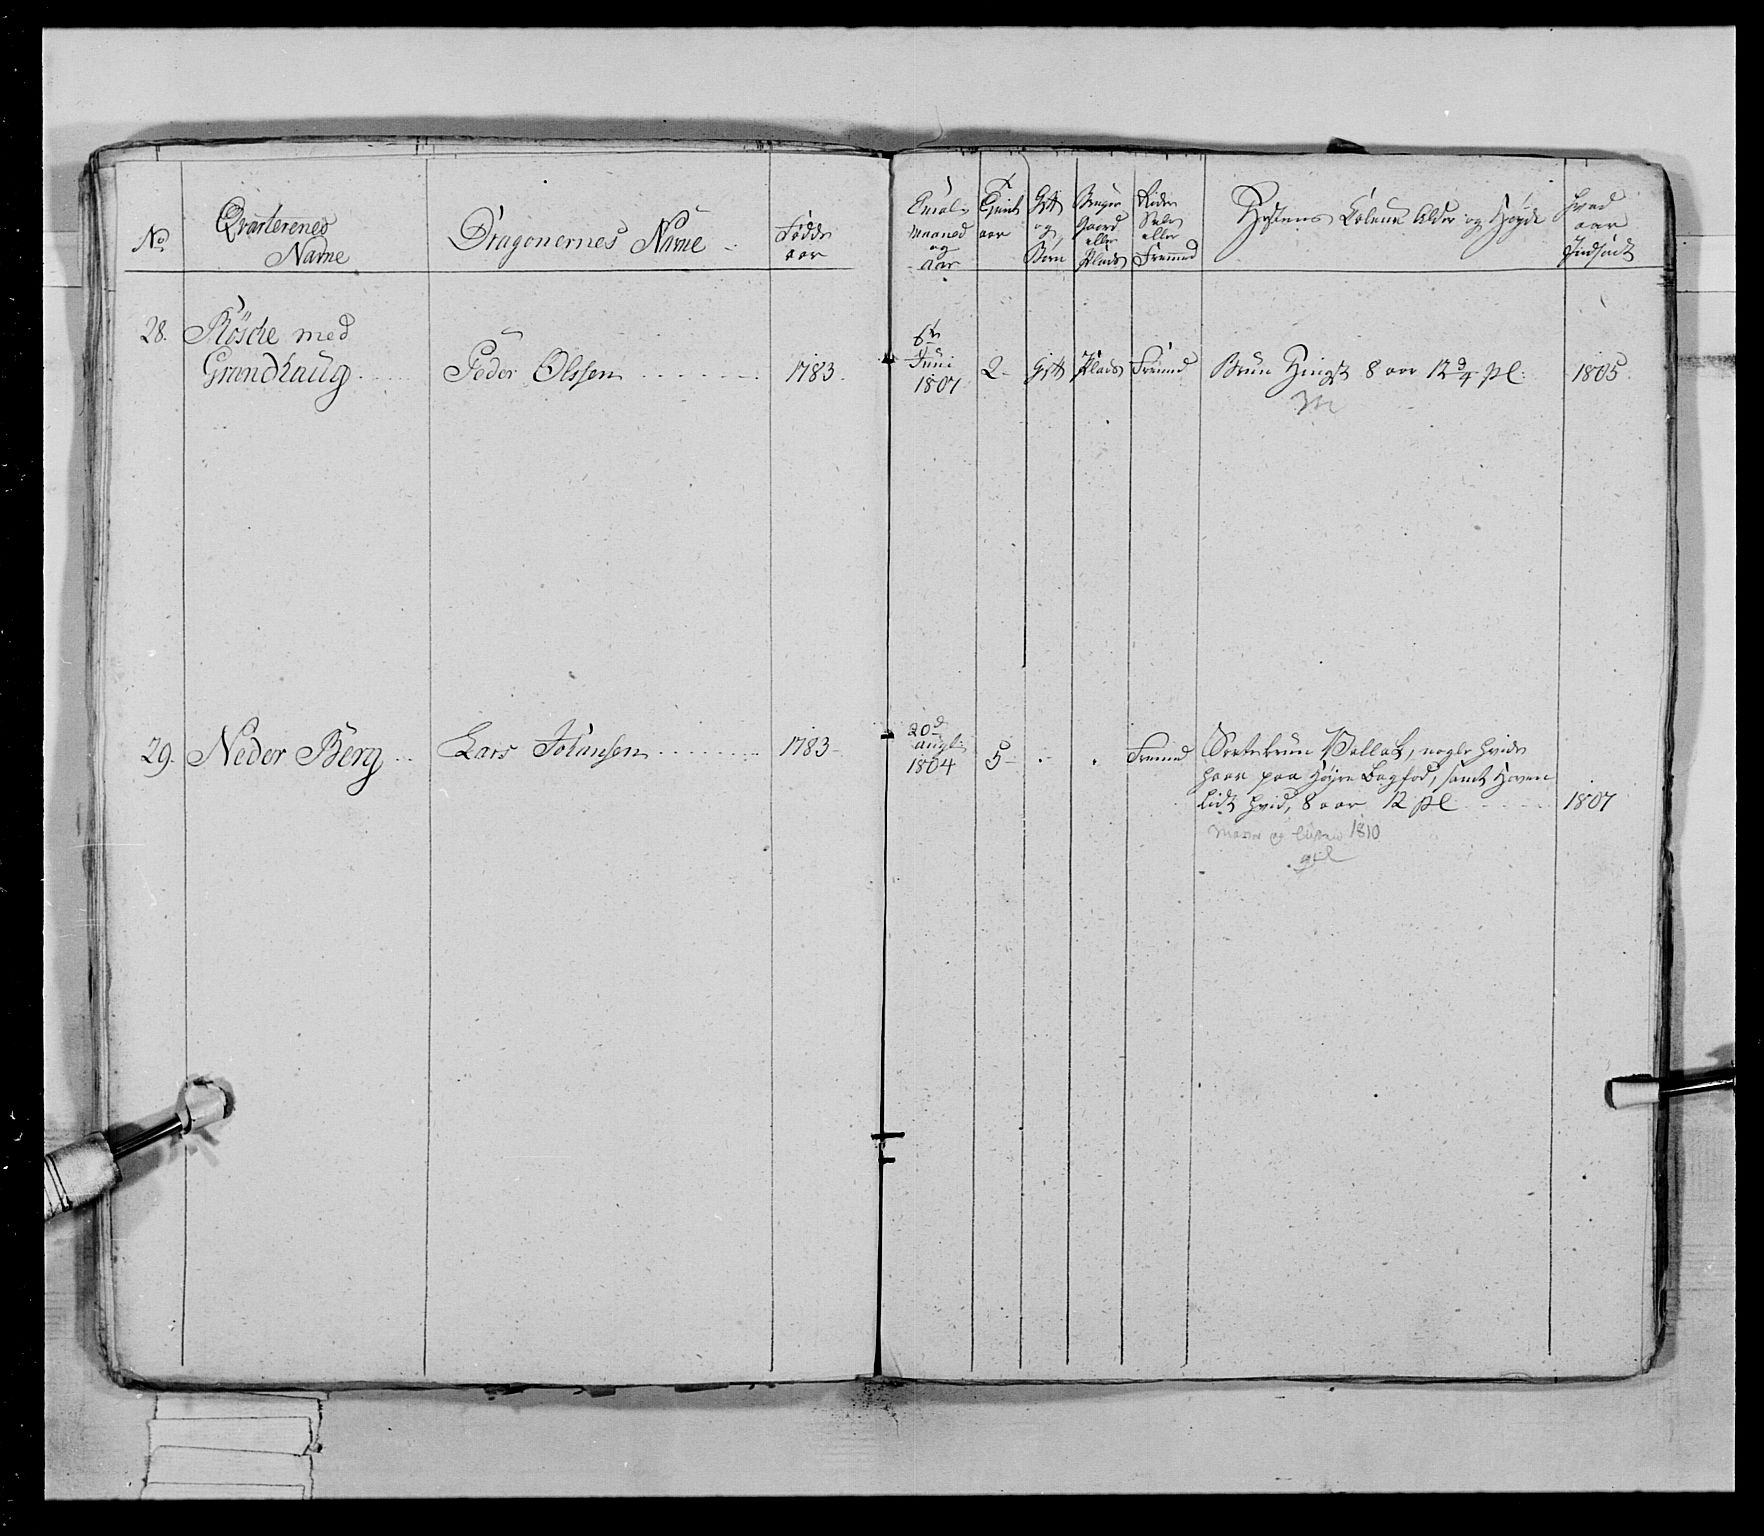 No
Qvarterenes
Navne
Dragonernes Navne
Fødde
aar
Enrol.
Maaned
og
Aar
Tient
aar
Gift
og
Børn
Bruger
Gaard
eller
Plads
Rider
Selv
eller
Fremmed
Hestens Coleur Alder og Høyde
Hvad
aar
Indsadt
28. Røsche med
Grandhaug
Peder Olssen
1783.
6te
Juni
1807
2
Gift
Plads
Fremmed
Brun Hingst 8 aar 12 3/4 pl:
1805.
29. Neder Berg
Lars Johansen
1783
20de
augt:
1804
5
Fremmed
Sortebrun Vallak, nogle hvide
haar paa høyre Bagfod, samt Hoven
lidt hvid, 8 aar 12 pl
1807
og 1810